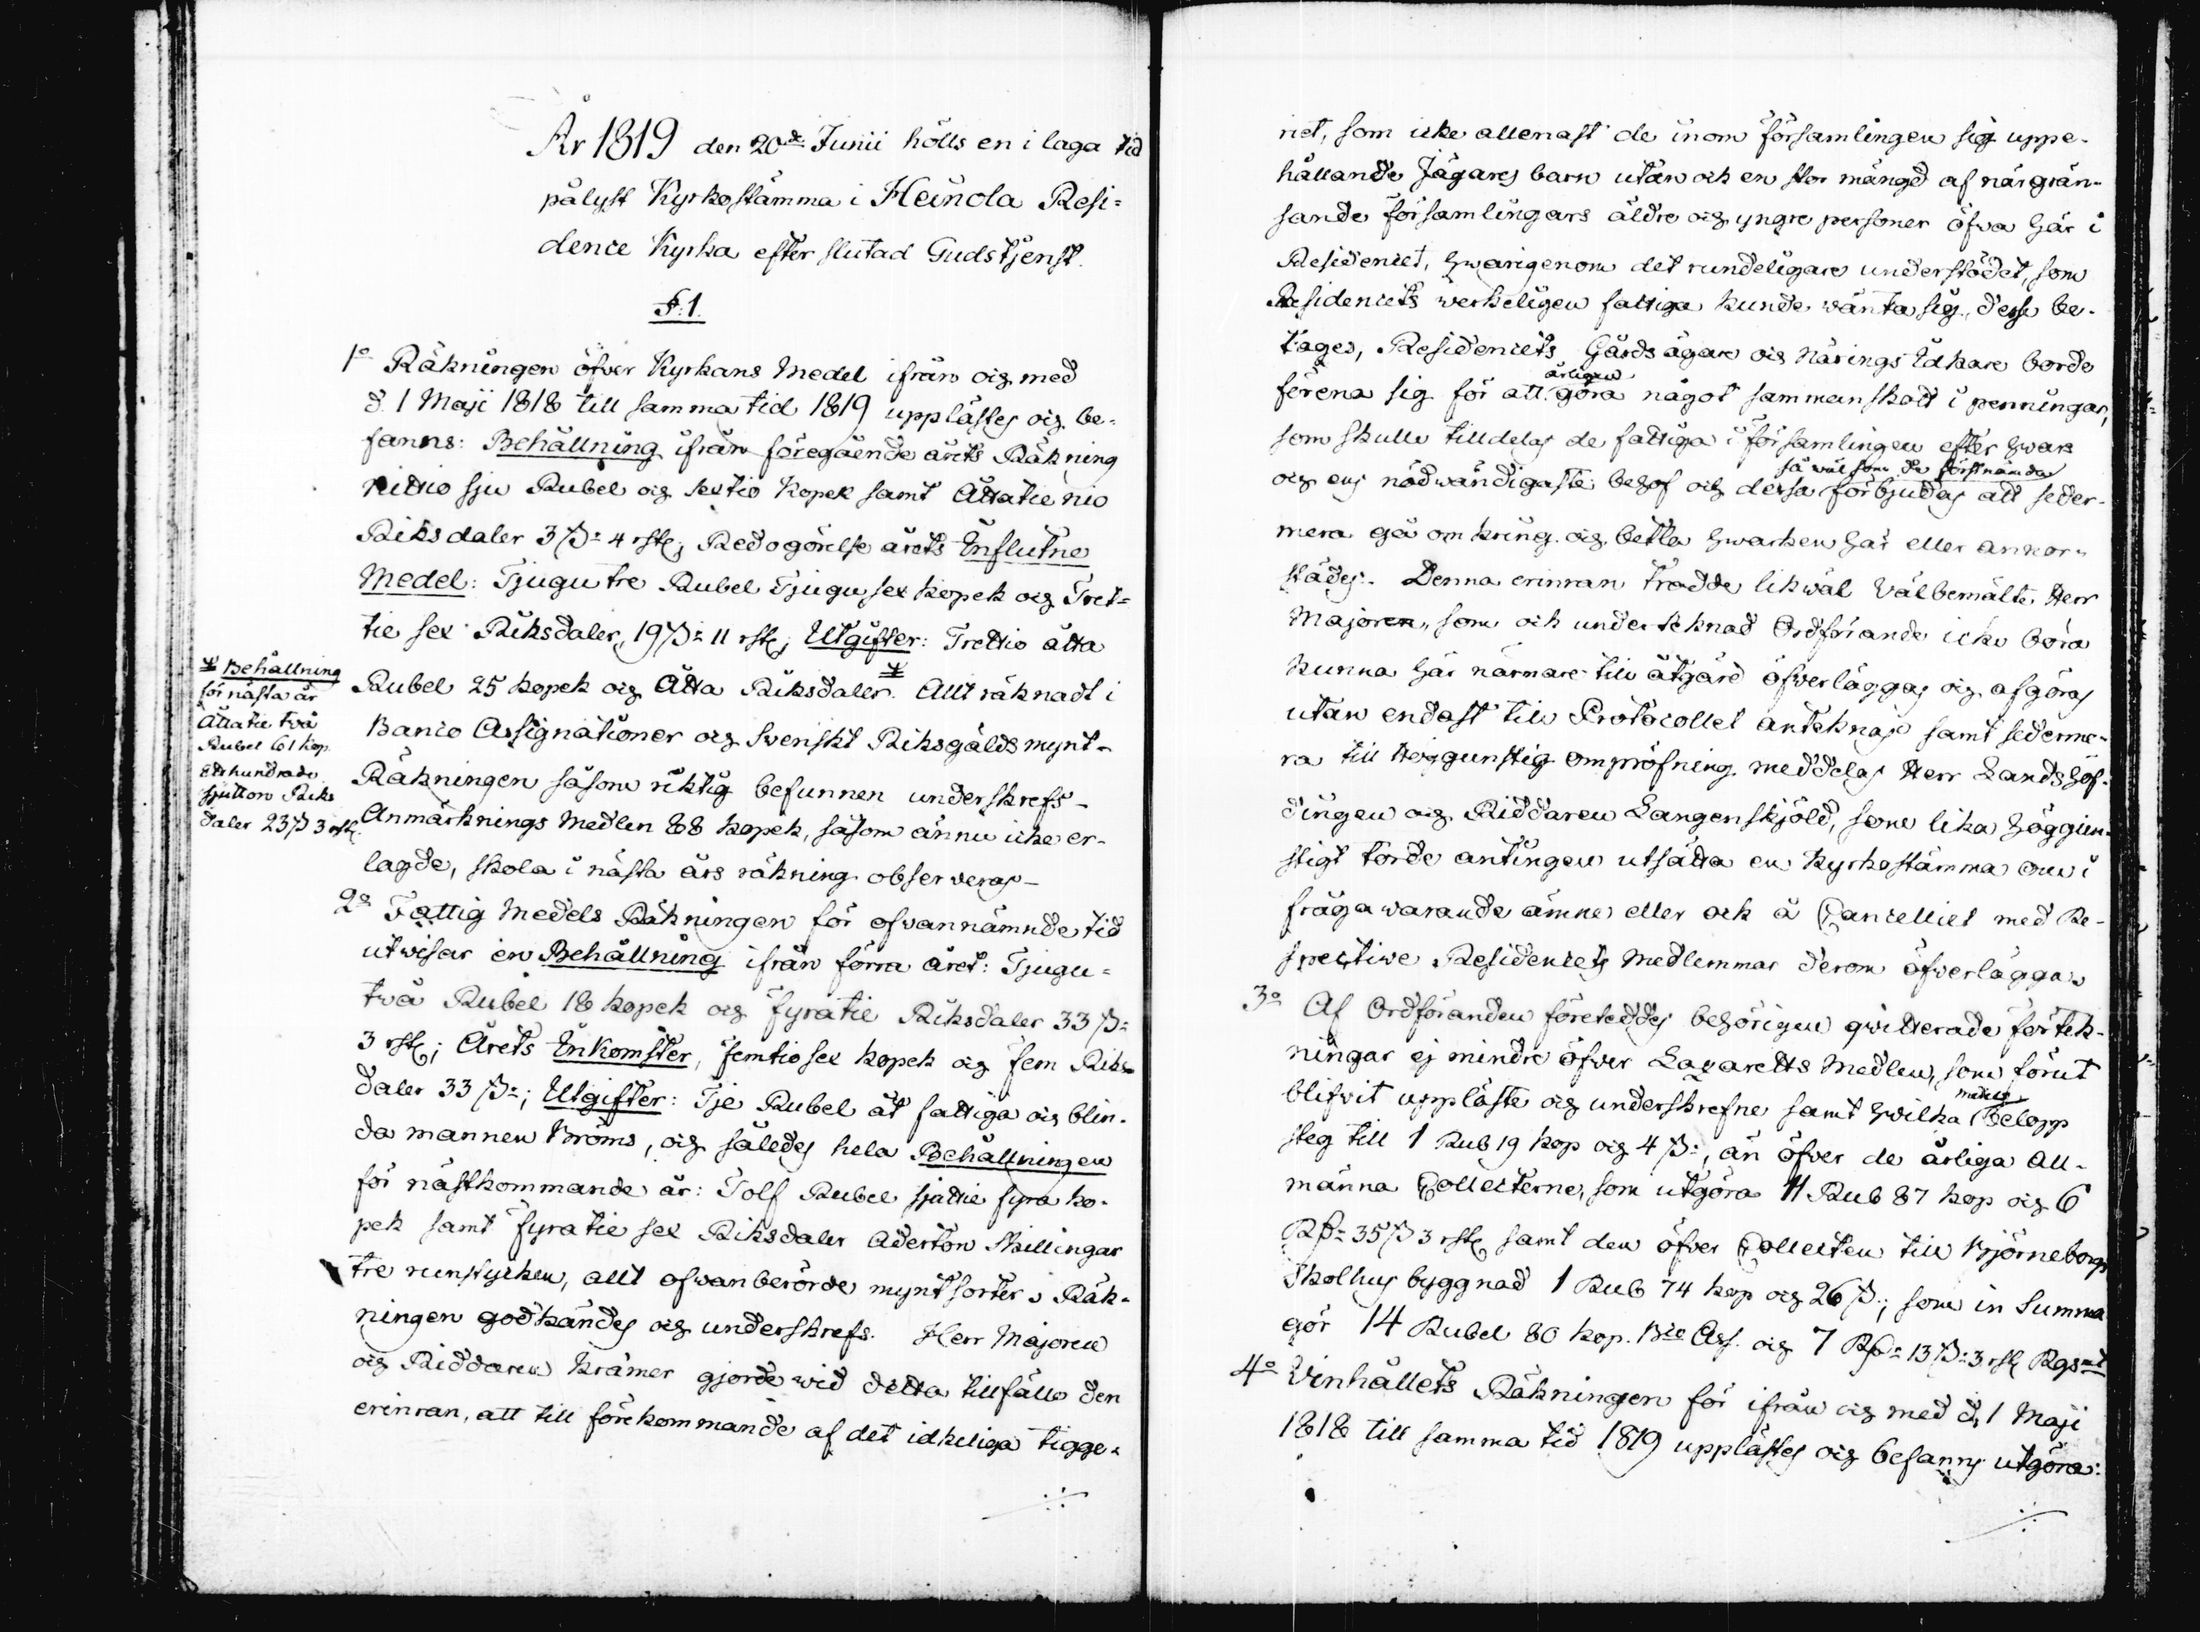 År 1819 den 20de Junii hölls en i laga tid
pålyst Kyrkostämma i Heinola Resi-
dence Kyrka efter slutad Gudstjenst.
§:1.
1o Räkningen öfver Kyrkans Medel ifrån och med
d. 1 Maji 1818 till samma tid 1819 upplästes och be-
fanns: Behållning ifrån föregående årets Räkning
nittio sju Rubel och sextio kopek samt Åttatie nio
Riksdaler 3 ß: 4 rst; Redogörelse årets Influtne
Medel: Tjugu tre Rubel Tjugu sex kopek och Tret-
tie sex Riksdaler, 19 ß: 11 rst; Utgifter: Trettio åtta
Rubel 25 kopek och Åtta Riksdaler. Allt räknadt i
Banco Assignationer och Svenskt Riksgälds mynt-
Räkningen såsom riktig befunnen underskrefs-
Anmärknings Medlen 88 kopek, såsom ännu icke er-
lagde, skola i nästa års räkning observeras-
Behållning
för nästa år
Åttatie två
Rubel 61 kop.
Etthundrade
sjutton Riks
daler 23 ß 3 rst.
2o Fattig Medels Räkningen för ofvannämnde tid
utwisar en Behållning ifrån förra året: Tjugu-
två Rubel 18 kopek och fyratie Riksdaler 33 ß:
3 rst; Årets Inkomster, femtio sex kopek och fem Riks-
daler 33 ß:; Utgifter: Tje Rubel åt fattiga och blin-
da mannen Bröms, och således hela Behållningen
för nästkommande år: Tolf Rubel sjuttie fyra ko-
pek samt fyratie sex Riksdaler Aderton Skillingar
tre runstycken, allt ofwanberörde mynt sorter; Räk-
ningen godkändes och underskrefs. Herr Majoren
och Riddaren Krämer gjorde wid detta tillfälle den
erinran, att till förekommande af det idkeliga tigge-
riet, som icke allenast de inom församlingen sig uppe-
hållande Jägares barn utan och en stor mängd af närgrän-
sande församlingars äldre och yngre personer öfva här i
Residencet, hwarigenom det rundeligare understödet, som
Residencets werkeligen fattiga kunde wänta sig, desse be-
tages, Residencets Gårdsägare och Närings Idkare borde
förena sig för att årligen göra något sammanskott i penningar,
som skulle tilldelas de fattiga i församlingen efter hwars
och ens nödwändigaste behof och dessa såwäl som de förstnämda förbjudas att seder-
mera gå omkring och bettla hwarken här eller annor-
städes. Denna erinran trodde likwäl Välbemälte Herr
Majoren, som och undertecknad Ordförande icke böra
kunna här närmare till åtgärd öfverläggas och afgöras
utan endast till Protocollet antecknas samt sederme-
ra till Höggunstig ompröfning meddelas Herr Landshöf-
dingen och Riddaren Langenskjöld, som lika höggun-
stigt torde antingen utsätta en Kyrkostämma om i
fråga warande ämne eller och å Cancelliet med Re-
spective Residencets Medlemmar derom öfverlägga.
3o Af Ordföranden företeddes behörigen qwitterade förtek-
ningar ej mindre öfver Lazaretts Medlen, som förut
blifvit uppläste och underskrefne samt hwilka medels Belopp
steg till 1 Rub 19 kop och 4 ß:, än öfver de årliga All-
männa Collecterne, som utgöra 11 Rub 87 kop och 6
Rd: 35 ß 3 rst samt den öfver Collecten till Björneborgs
Skolhus byggnad 1 Rub 74 kop och 26 ß:; som in Summa
gör 14 Rubel 80 kop. Bco Ass. och 7 Rd: 13 ß: 3 rst Rgsmt
4o Vinhållets Räkningen för ifrån och med d. 1 Maji
1818 till samma tid 1819 upplästes och befanns utgöra: